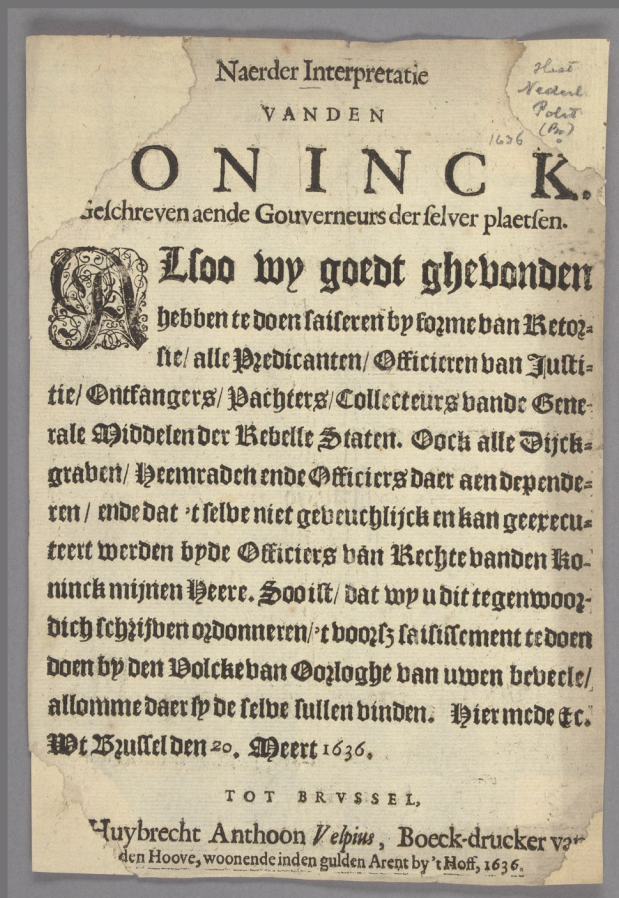 Naerder Interpretatie
VANDEN
ONINCK.
Geschreven aende Gouverneurs der selver plaetsen.
ALsoo wy goedt ghevonden
hebben te doen saiseren by forme van Retor-
sie/ alle Predicanten/ Officieren van Justi-
tie/ Ontfangers/ Pachters/ Collecteurs vande Gene-
rale Middelen der Rebelle Staten. Oock alle Dijck-
graven/ Heemraden ende Officiers daer aen depende-
ren/ ende dat 't selve niet geveuchlijck en kan geexecu-
teert werden byde Officiers van Rechte vanden Ko-
ninck mijnen Heere. Soo ist/ dat wy u dit tegenwoor-
dich schrijven ordonneren/ 't voorsz saisissement te doen
doen by den Volcke van Oorloghe van uwen bevele/
allomme daer sy de selve sullen vinden. Hier mede &c.
Wt Brussel den 20. Meert 1636.
TOT BRVSSEL,
Huybrecht Anthoon Velpius, Boeck-drucker van
den Hoove, woonende inden gulden Arent by 't Hoff, 1636.
Hist
Nederl
Polit
(Br)
1636